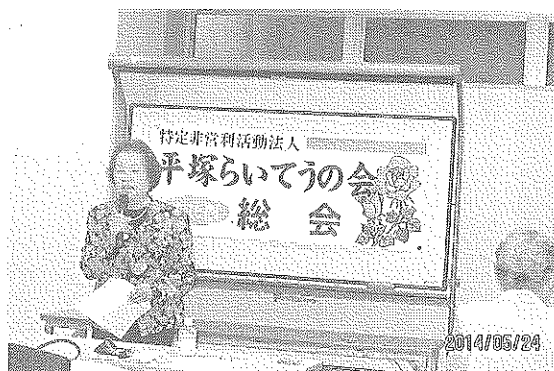 特定非営利活動法人
平塚らいてうの会
総会
2014/05/24